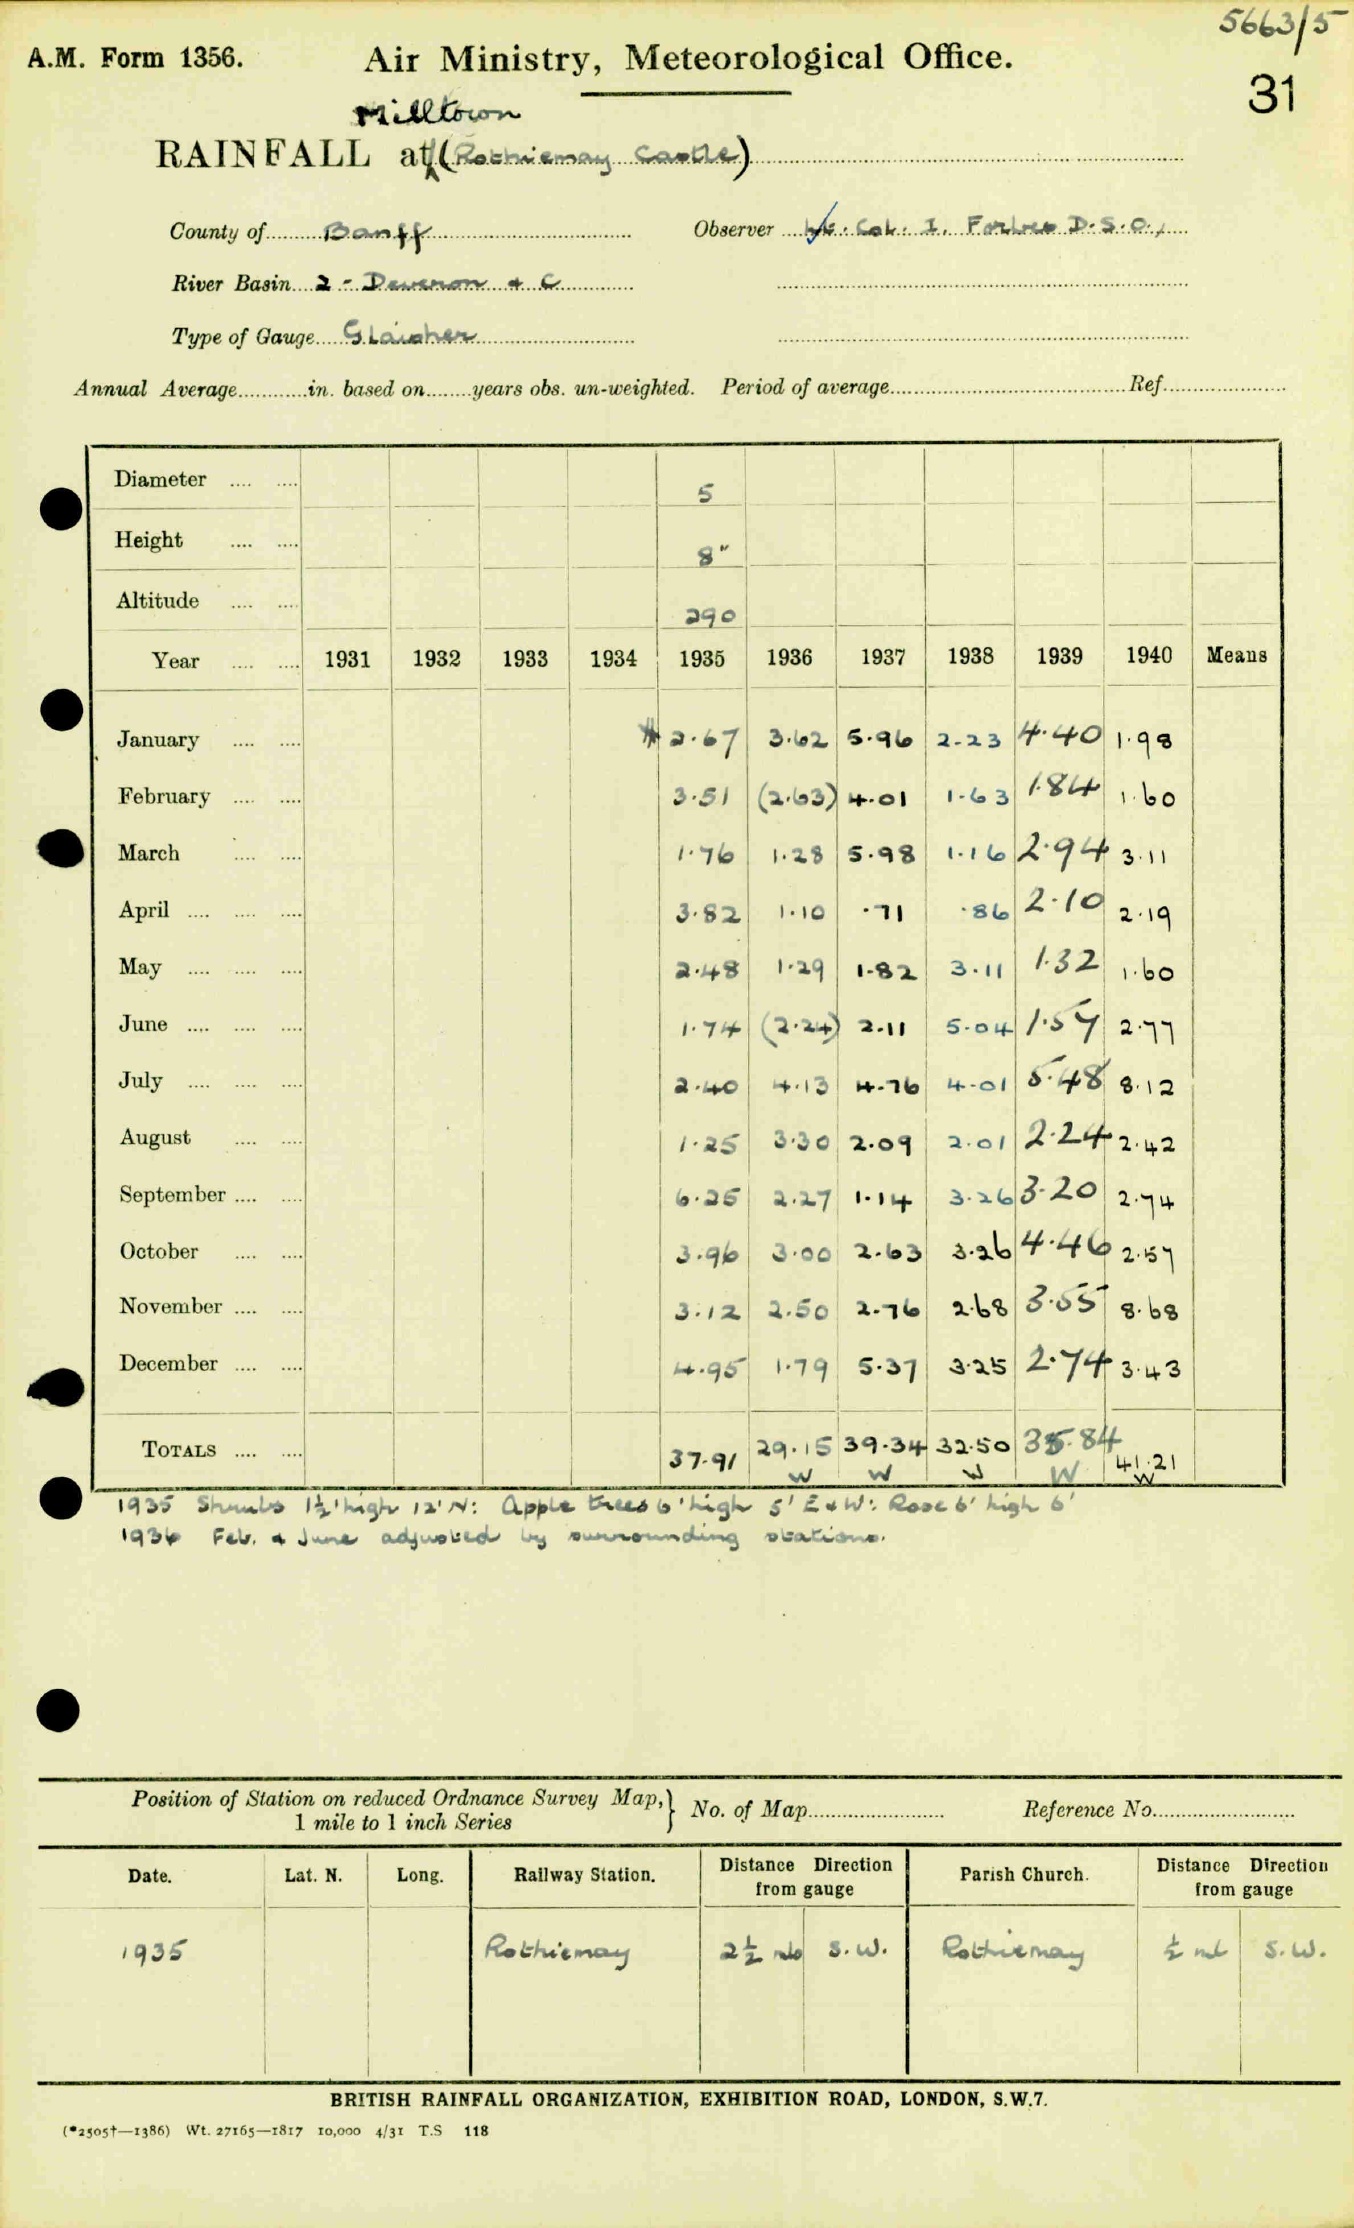 5663/5
A.M. Form 1356. Air Ministry, Meteorological Office.
31
Milltown
RAINFALL at (Rothiemay Castle)
County of Banff Observer Lt. Col. I. Forbes D.S.O.,
River Basin 2 - Deveron & C
Type of Gauge Glaisher
Annual Average in. based on years obs. un-weighted. Period of average Ref.
Diameter 5
Height 8"
Altitude 290
Year 1931 1932 1933 1934 1935 1936 1937 1938 1939 1940 Means
January 2.67 3.62 5.96 2.23 4.40 1.98
February 3.51 (2.63) 4.01 1.63 1.84 1.60
March 1.76 1.28 5.98 1.16 2.94 3.11
April 3.82 1.10 .71 .86 2.10 2.19
May 2.48 1.29 1.82 3.11 1.32 1.60
June 1.74 (2.24) 2.11 5.04 1.57 2.77
July 2.40 4.13 4.76 4.01 5.48 8.12
August 1.25 3.30 2.09 2.01 2.24 2.42
September 6.25 2.27 1.14 3.26 3.20 2.74
October 3.96 3.00 2.63 3.26 4.46 2.57
November 3.12 2.50 2.76 2.68 3.55 8.68
December 4.95 1.79 5.37 3.25 2.74 3.43
TOTALS 37.91 29.15 39.34 32.50 35.84 41.21
W W W W W
1935 Shrubs 1½' high 12' N: Apple trees 6' high 5' E & W: Rose 6' high 6'
1936 Feb. & June adjusted by surrounding stations.
Position of Station on reduced Ordnance Survey Map, } No. of Map Reference No.
1 mile to 1 inch Series
Date. Lat. N. Long. Railway Station. Distance Direction from gauge Parish Church. Distance Direction from gauge
1935 Rothiemay 2½ mls S.W. Rothiemay ½ ml S.W.
BRITISH RAINFALL ORGANIZATION, EXHIBITION ROAD, LONDON, S.W.7.
(*2505†—1386) Wt. 27165—1817 10,000 4/31 T.S 118